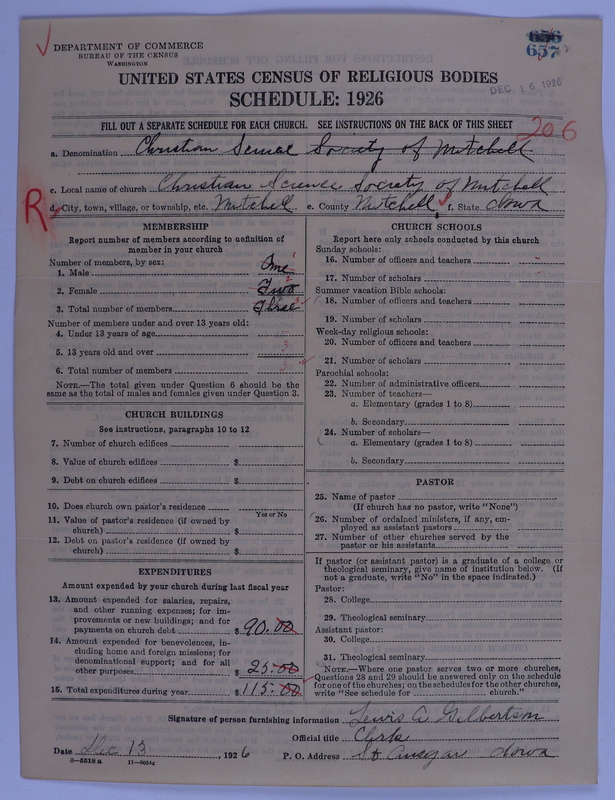 656
657
DEPARTMENT OF COMMERCE
BUREAU OF THE CENSUS
WASHINGTON
DEC 16 1926
UNITED STATES CENSUS OF RELIGIOUS BODIES
SCHEDULE: 1926
FILL OUT A SEPARATE SCHEDULE FOR EACH CHURCH. SEE INSTRUCTIONS ON THE BACK OF THIS SHEET
206
a. Denomination Christian Science Society of Mitchell
c. Local name of church Christian Science Society of Mitchell
R
d. City, town, village, or township, etc. Mitchell e. County Mitchell f. State Iowa
MEMBERSHIP
Report number of members according to definition of
member in your church
Number of members, by sex:
1. Male One 1
2. Female Two 2
3. Total number of members Three 3
Number of members under and over 13 years old:
4. Under 13 years of age
5. 13 years old and over 3
6. Total number of members 3
NOTE.—The total given under Question 6 should be
same as the total of males and females given under Question 3.
CHURCH BUILDINGS
See instructions, paragraphs 10 to 12
7. Number of church edifices
8. Value of church edifices $
9. Debt on church edifices $
10. Does church own pastor's residence
Yes or No
11. Value of pastor's residence (if owned by
church) $
12. Debt on pastor's residence (if owned by
church) $
EXPENDITURES
Amount expended by your church during last fiscal year
13. Amount expended for salaries, repairs,
and other running expenses; for im-
provements or new buildings; and for
payments on church debt $ 90.00
14. Amount expended for benevolences, in-
cluding home and foreign missions; for
denominational support; and for all
other purposes $ 25.00
15. Total expenditures during year $ 115.00
CHURCH SCHOOLS
Report here only schools conducted by this church
Sunday schools:
16. Number of officers and teachers
17. Number of scholars
Summer vacation Bible schools:
18. Number of officers and teachers
19. Number of scholars
Week-day religious schools:
20. Number of officers and teachers
21. Number of scholars
Parochial schools:
22. Number of administrative officers
23. Number of teachers—
a. Elementary (grades 1 to 8)
b. Secondary
24. Number of scholars—
a. Elementary (grades 1 to 8)
b. Secondary
PASTOR
25. Name of pastor
(If church has no pastor, write "None")
26. Number of ordained ministers, if any, em-
ployed as assistant pastors
27. Number of other churches served by the
pastor or his assistants
If pastor (or assistant pastor) is a graduate of a college or
theological seminary, give name of institution below. (If
not a graduate, write "No" in the space indicated.)
Pastor:
28. College
29. Theological seminary
Assistant pastor:
30. College
31. Theological seminary
NOTE.—Where one pastor serves two or more churches,
Questions 28 and 29 should be answered only on the schedule
for one of the churches; on the schedules for the other churches,
write "See schedule for church."
Signature of person furnishing information Lewis A Gilbertson
Official title Clerk
Date Dec 13, 1926 P. O. Address St Ansgar Iowa
8-5518a 11-9034a